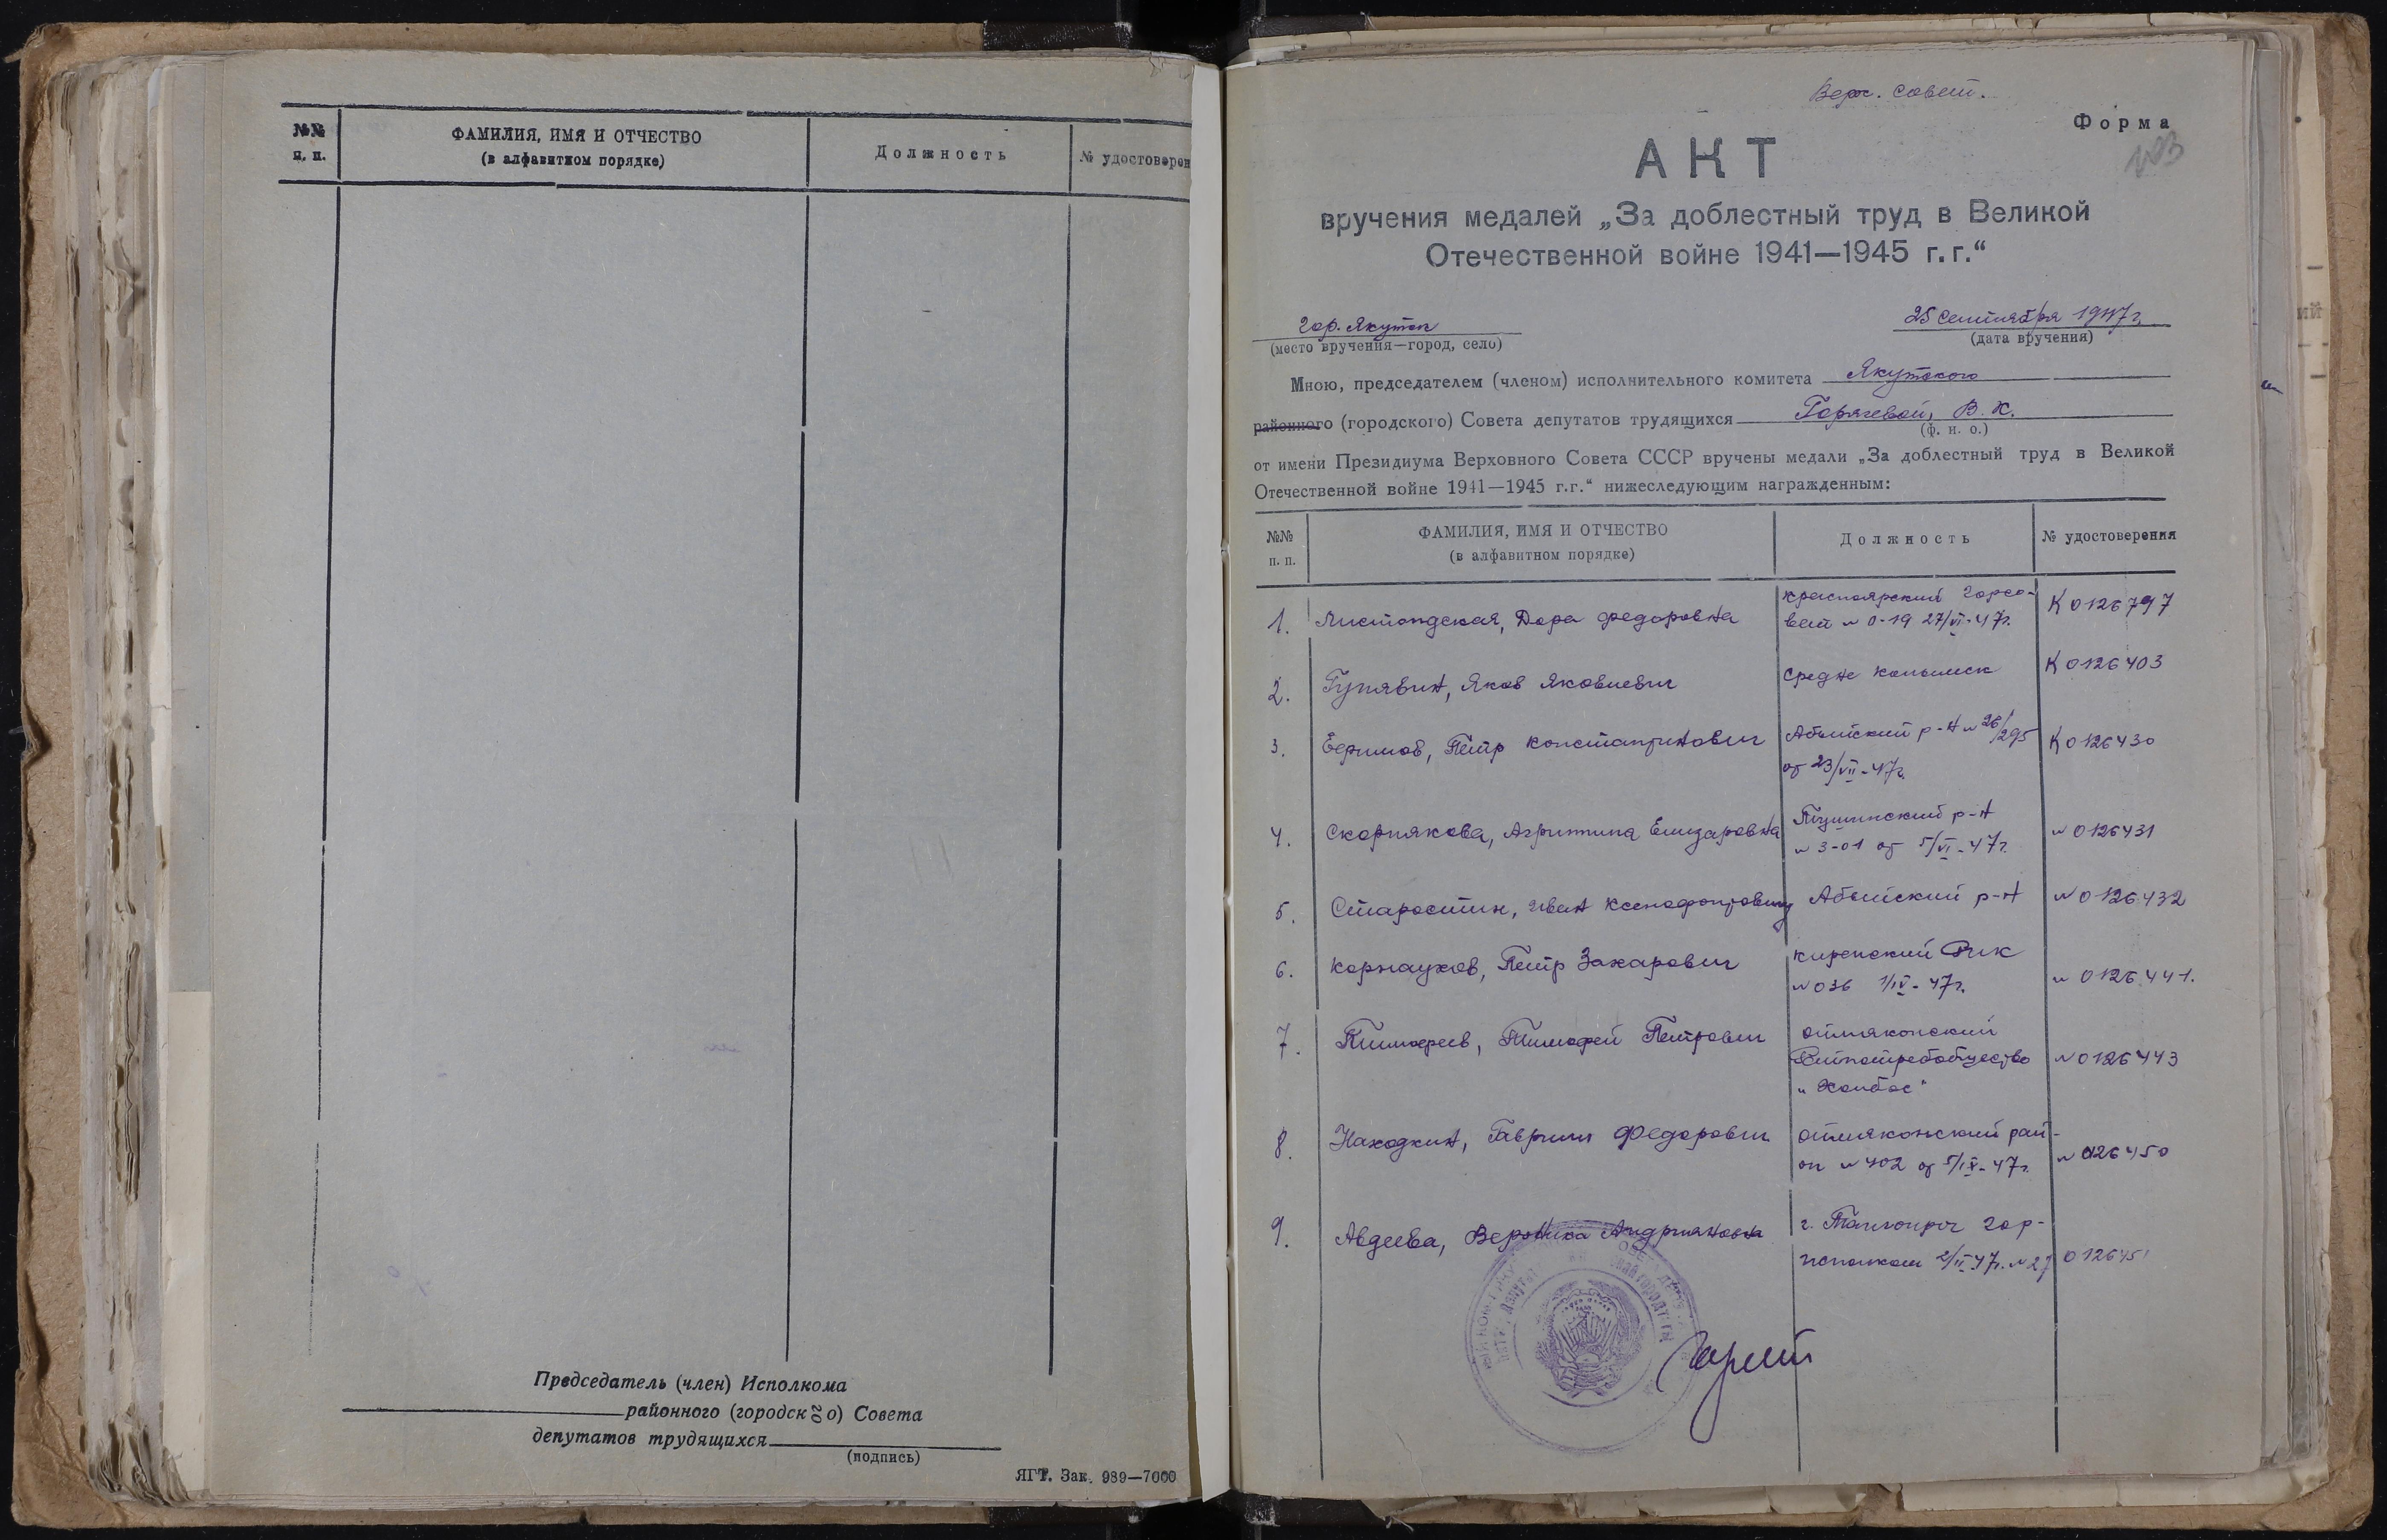 №№
п. п.
ФАМИЛИЯ, ИМЯ И ОТЧЕСТВО
(в алфавитном порядке)
Должность
№ удостоверен
Председатель (член) Исполкома
районного (городского) Совета
депутатов трудящихся
(подпись)
ЯГТ. Зак. 989—7000
Верх. Совет.
Форма
АКТ
вручения медалей „За доблестный труд в Великой
Отечественной войне 1941—1945 г.г.“
гор. Якутск
25 сентября 1947г.
(место вручения—город, село)
(дата вручения)
Мною, председателем (членом) исполнительного комитета Якутского
районного (городского) Совета депутатов трудящихся Горячевой, В. К.
(ф. и. о.)
от имени Президиума Верховного Совета СССР вручены медали „За доблестный труд в Великой
Отечественной войне 1941—1945 г.г.“ нижеследующим награжденным:
№№
п. п.
ФАМИЛИЯ, ИМЯ И ОТЧЕСТВО
(в алфавитном порядке)
Должность
№ удостоверения
1. Дора Федоровна
Красноярский горсо-
вет № 0-19 27/VI-47г.
К 0126797
2. Яков Яковлевич
Средне Колымск
К 0126403
3. Петр Константинович
Абыйский р-н № 26/295
от 23/VII-47г.
К 0126430
4. Скорнякова, Агрипина Елизаровна
р-н
№ 3-01 от 5/VI-47г.
№ 0126431
5. Старостин, Иван Ксенофонтович
Абыйский р-н
№ 0126432
6. Корнаухов, Петр Захарович
Киренский Рик
№ 036 1/IV-47г.
№ 0126441.
7. Тимофеев, Тимофей Петрович
Оймяконский
№ 0126443
8. Находкин, Гаврил Федорович
Оймяконский рай-
он № 402 от 5/IX-47г.
№ 0126450
9. Авдеева, Вероника Андрияновна
г. Таганрог гор-
исполком 2/II-47г. № 27
0126451